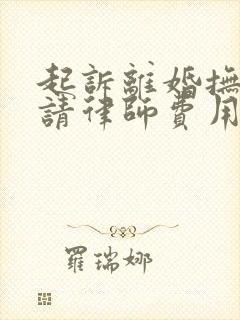 起訴離婚撫
請律師費用
羅瑞娜